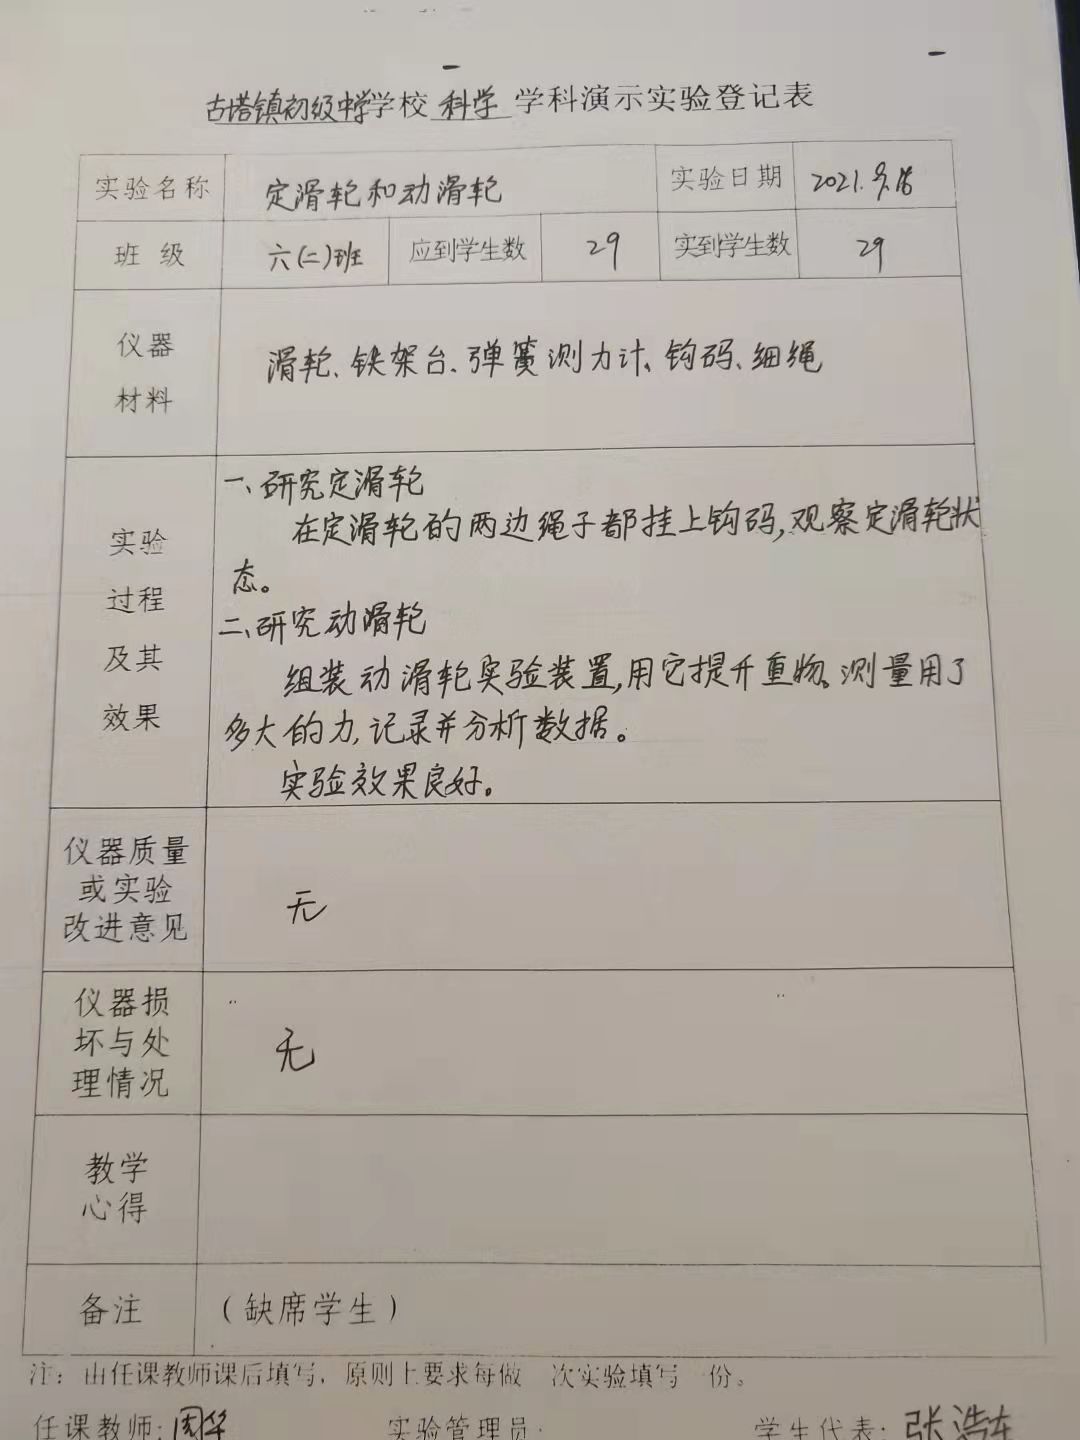 古塔镇初级中学学校 科学 学科演示实验登记表
实验名称 定滑轮和动滑轮 实验日期 2021.9.16
班 级 六(二)班 应到学生数 29 实到学生数 29
仪器
材料
滑轮、铁架台、弹簧测力计、钩码、细绳
实验
过程
及其
效果
一、研究定滑轮
在定滑轮的两边绳子都挂上钩码,观察定滑轮状
态。
二、研究动滑轮
组装动滑轮实验装置,用它提升重物。测量用了
多大的力,记录并分析数据。
实验效果良好。
仪器质量
或实验
改进意见
无
仪器损
坏与处
理情况
无
教学
心得
备注 (缺席学生)
注:由任课教师课后填写,原则上要求每做 次实验填写 份。
任课教师:周华 实验管理员: 学生代表:张浩东